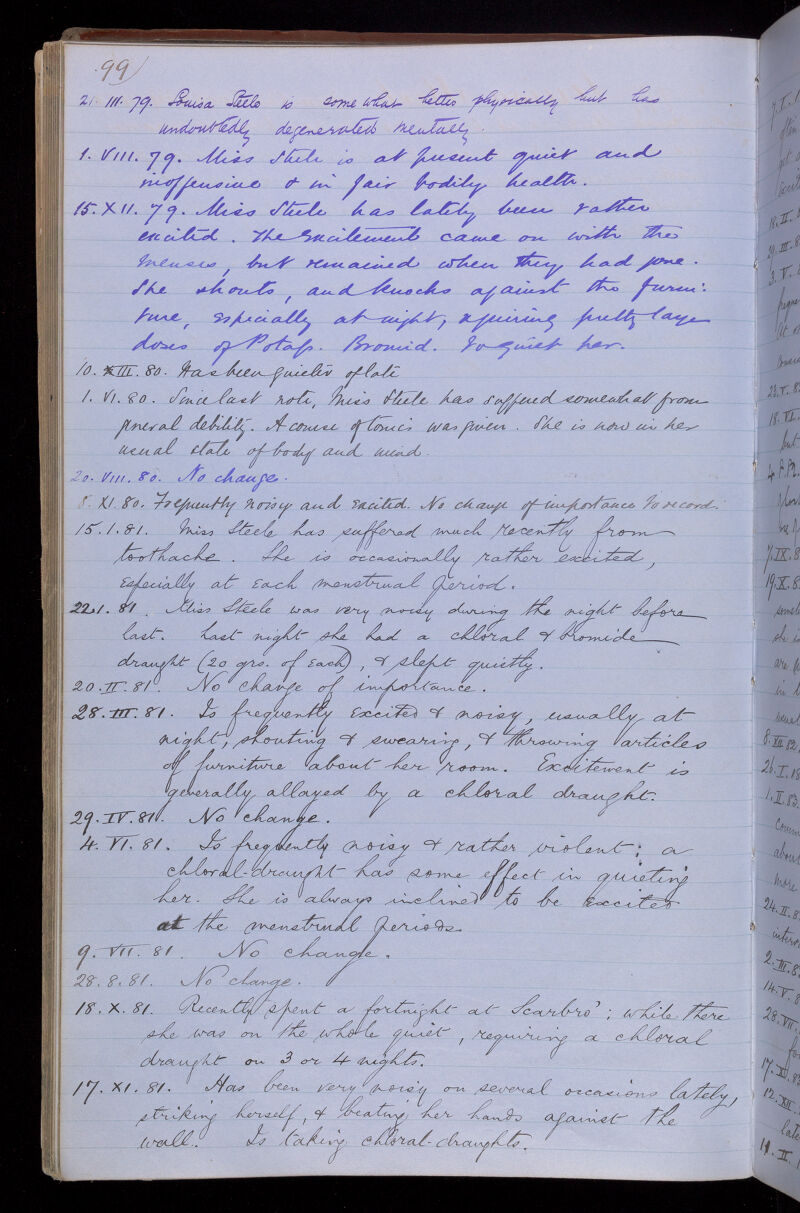 99
21. III. 79. Louisa Steele is somewhat better physically but has
undoubtedly degenerated mentally.
1. VIII. 79. Miss Steele is at present quiet and
inoffensive & in fair bodily health.
15. XII. 79. Miss Steele has lately been rather
excited. The excitement came on with the
menses, but remained when they had gone.
She shouts, and knocks against the furni:
ture, especially at night, requiring pretty large
doses of Potass. Bromid. to quiet her.
10. III. 80. Has been quieter of late
1. VI. 80. Since last note, Miss Steele has suffered somewhat from
general debility. A course of tonics was given. She is now in her
usual state of body and mind.
20. VIII. 80. No change.
8. XI. 80. Frequently noisy and excited. No change of importance to record.
15. 1. 81. Miss Steele has suffered much recently from
toothache. She is occasionally rather excited,
especially at each menstrual period.
22. 1. 81. Miss Steele was very noisy during the night before
last. Last night she had a chloral & bromide
draught (20 grs. of each), & slept quietly.
20. II. 81. No change of importance.
28. III. 81. Is frequently excited & noisy, usually at
night, shouting & swearing, & throwing articles
of furniture about her room. Excitement is
generally allayed by a chloral draught.
29. IV. 81. No change.
4. VI. 81. Is frequently noisy & rather violent; a
chloral-draught has some effect in quieting
her. She is always inclined to be excited
at the menstrual periods.
9. VII. 81. No change.
28. 8. 81. No change.
18. X. 81. Recently spent a fortnight at Scarbro'; while there
she was on the whole quiet, requiring a chloral
draught on 3 or 4 nights.
17. XI. 81. Has been very noisy on several occasions lately,
striking herself, & beating her hands against the
wall. Is taking chloral-draughts.